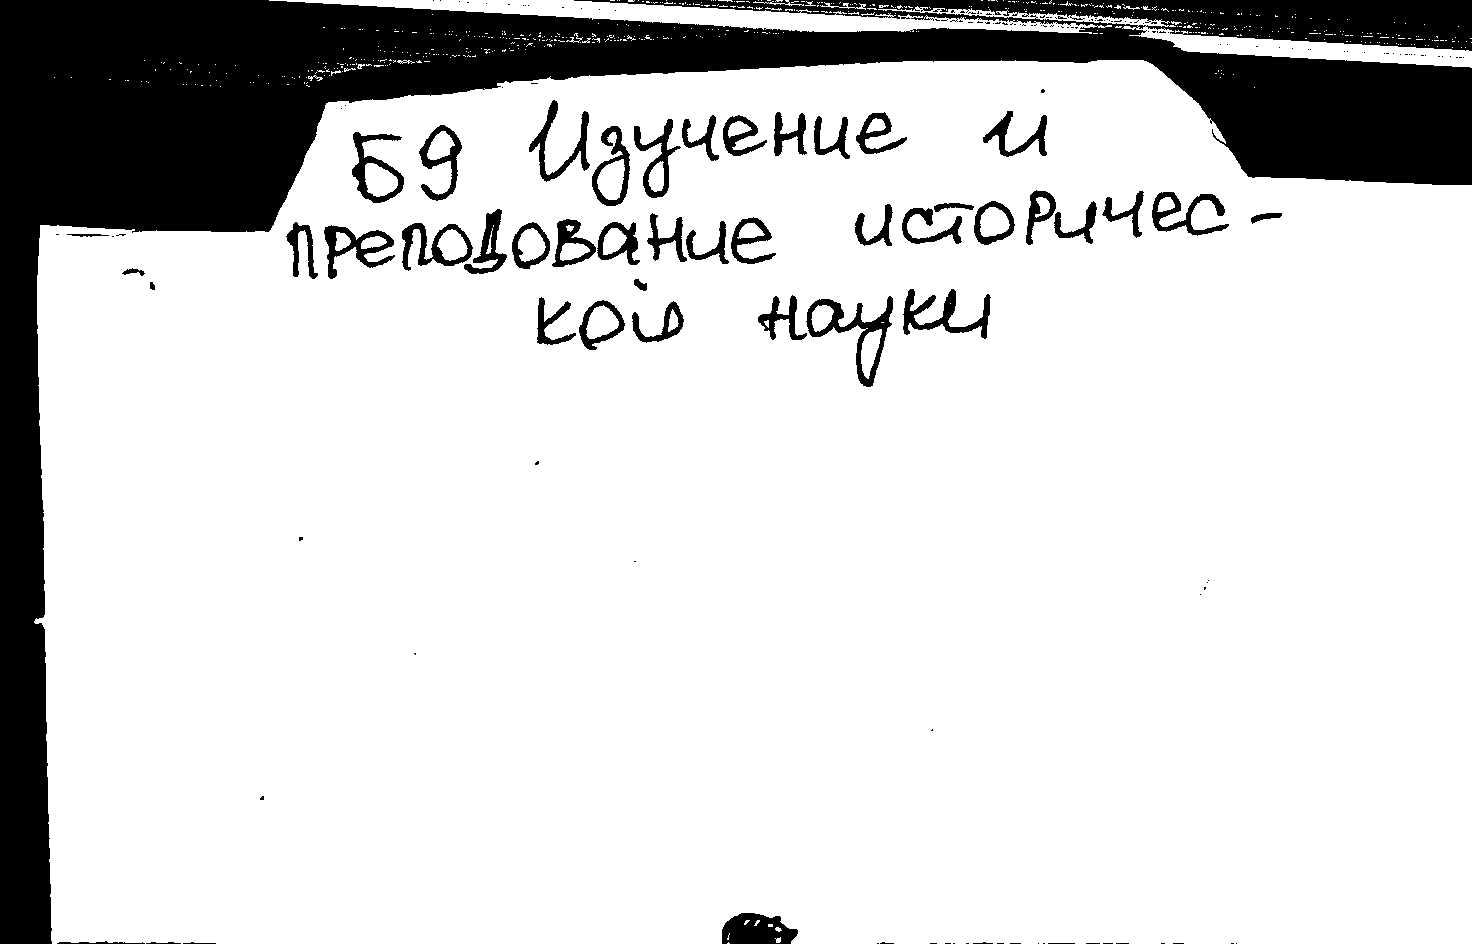 Б9 Изучение и
преподование историчес-
кой науки